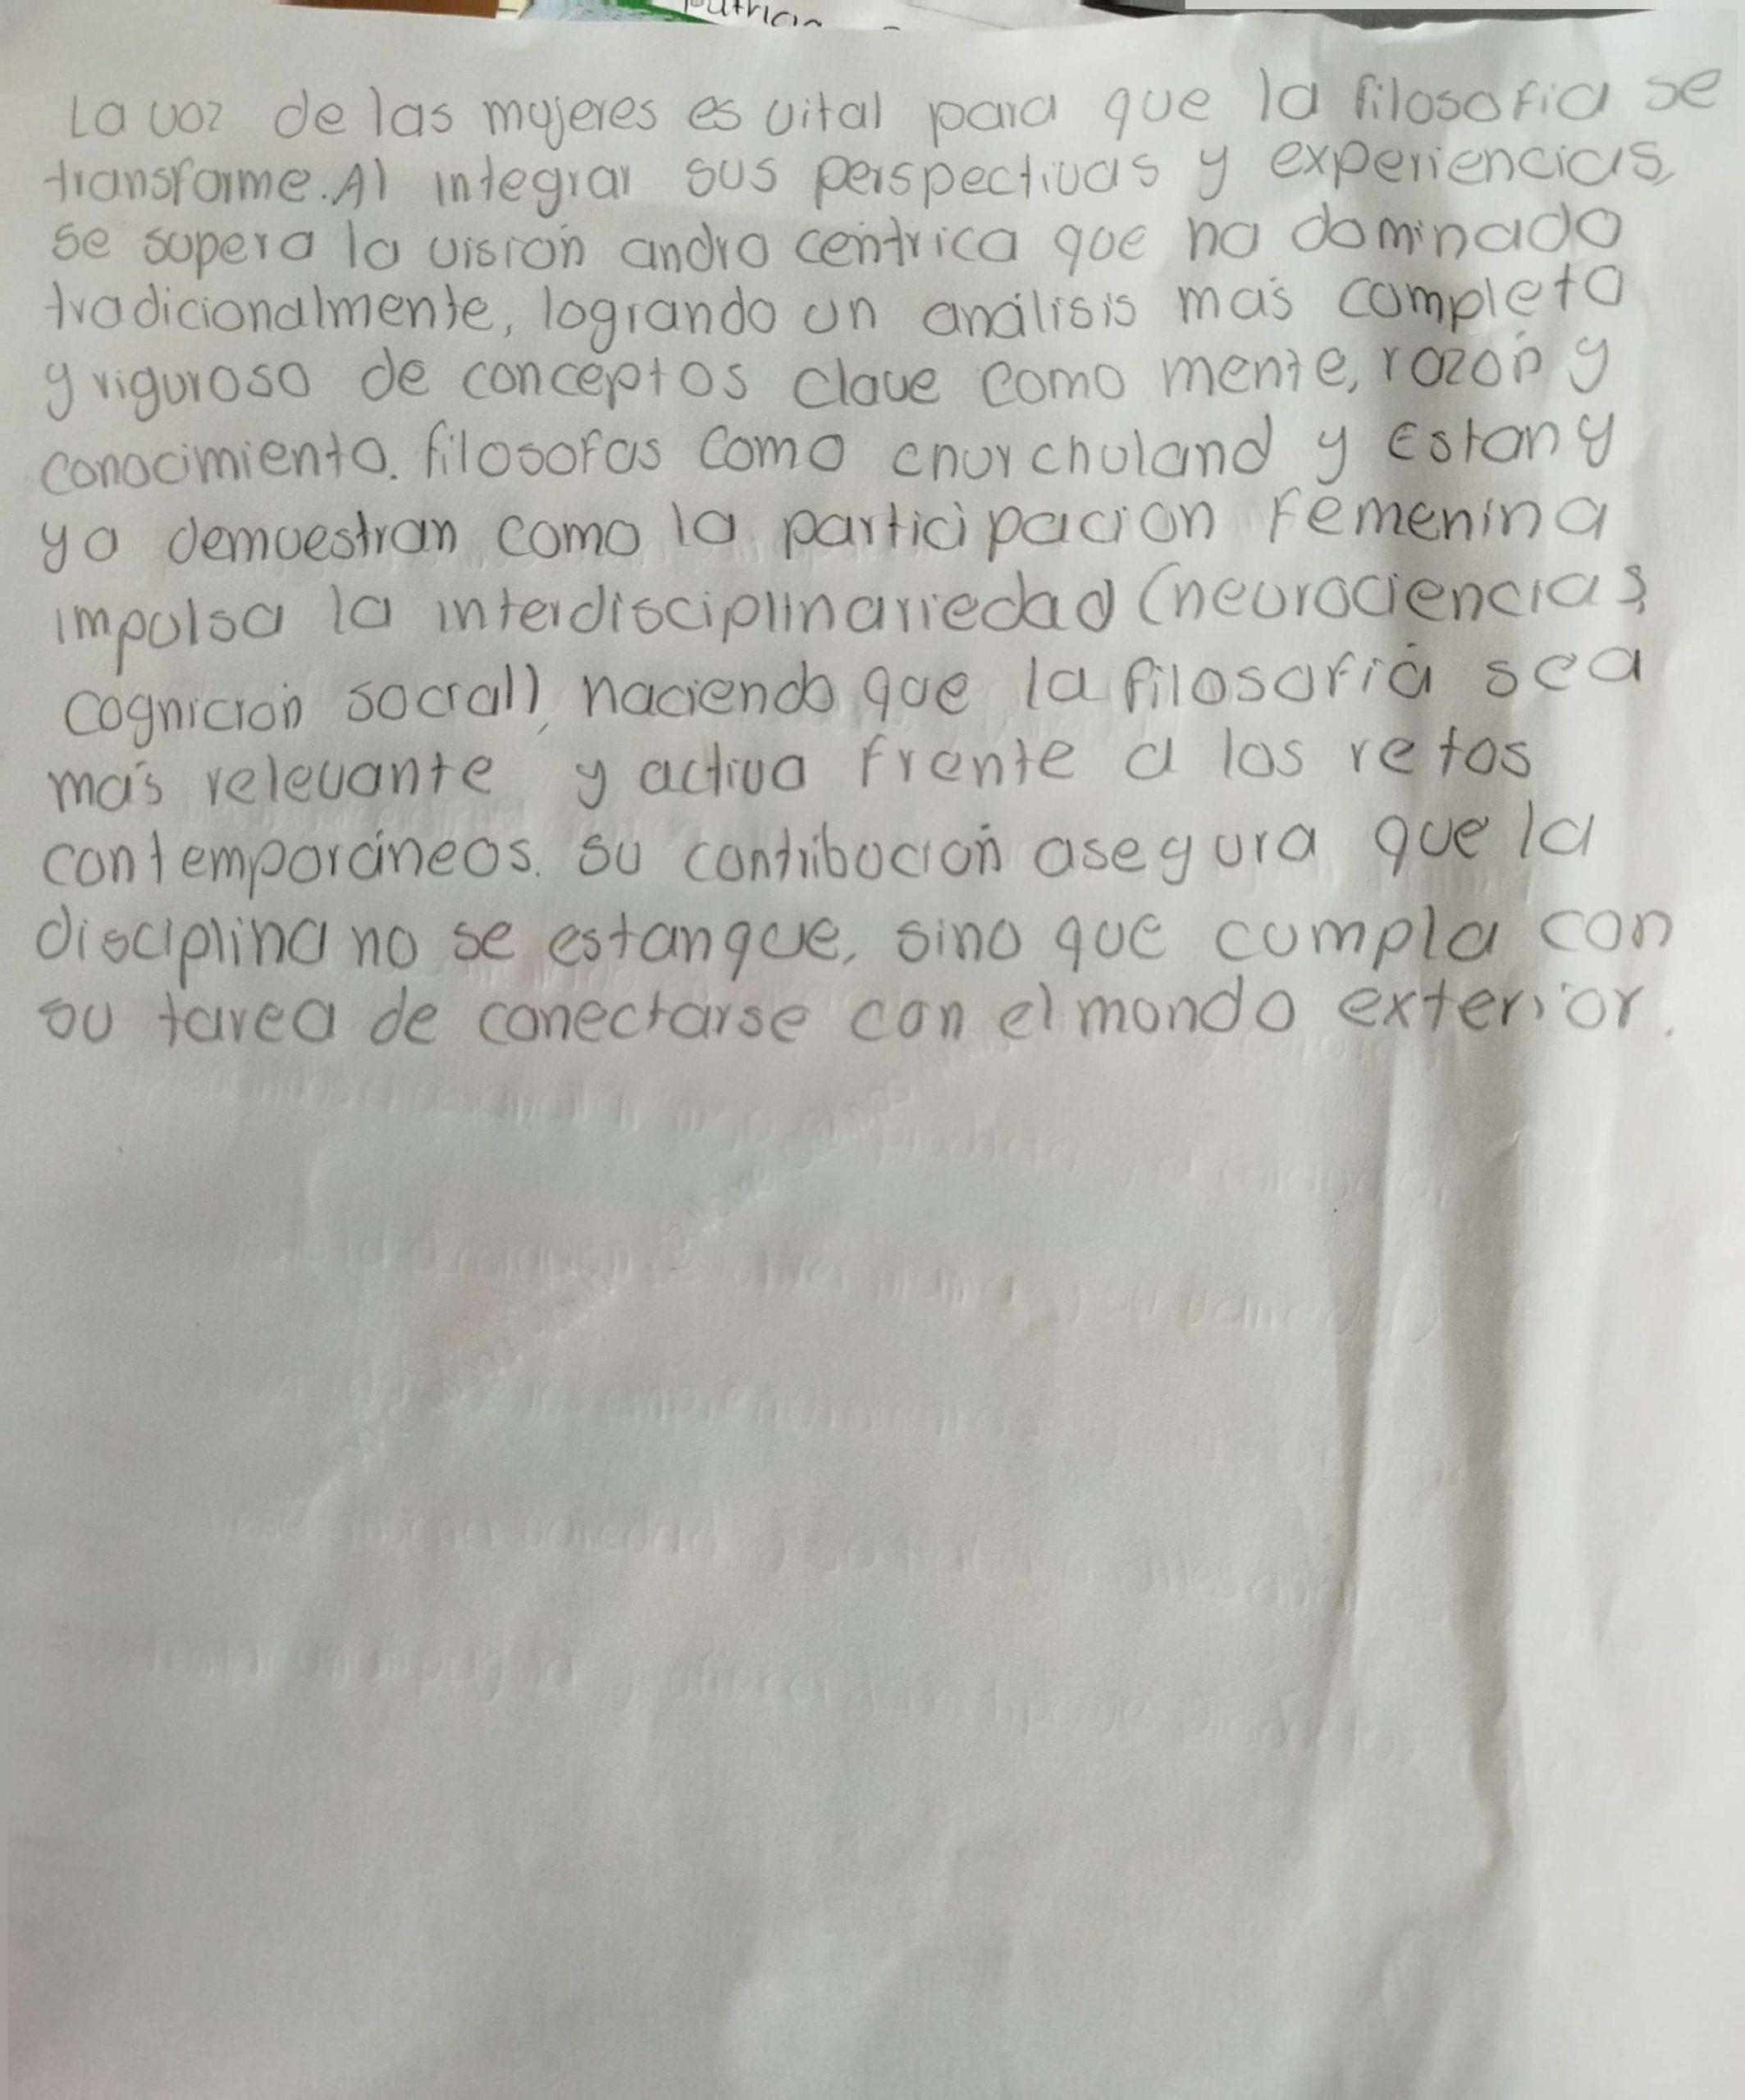 La voz de las mujeres es vital para que la filosofia se
transforme. Al integrar sus perspectivas y experiencias,
se supera la visión andro centrica que ha dominado
tradicionalmente, logrando un análisis más completo
y riguroso de conceptos clave como mente, razón y
conocimiento. filosofas como churchuland y Estany
ya demuestran como la participacion femenina
impulsa la interdisciplinariedad (neurociencias,
cognición social), haciendo que la filosofía sea
más relevante y activa frente a los retos
contemporáneos. su contribución asegura que la
disciplina no se estanque, sino que cumpla con
su tarea de conectarse con el mundo exterior.